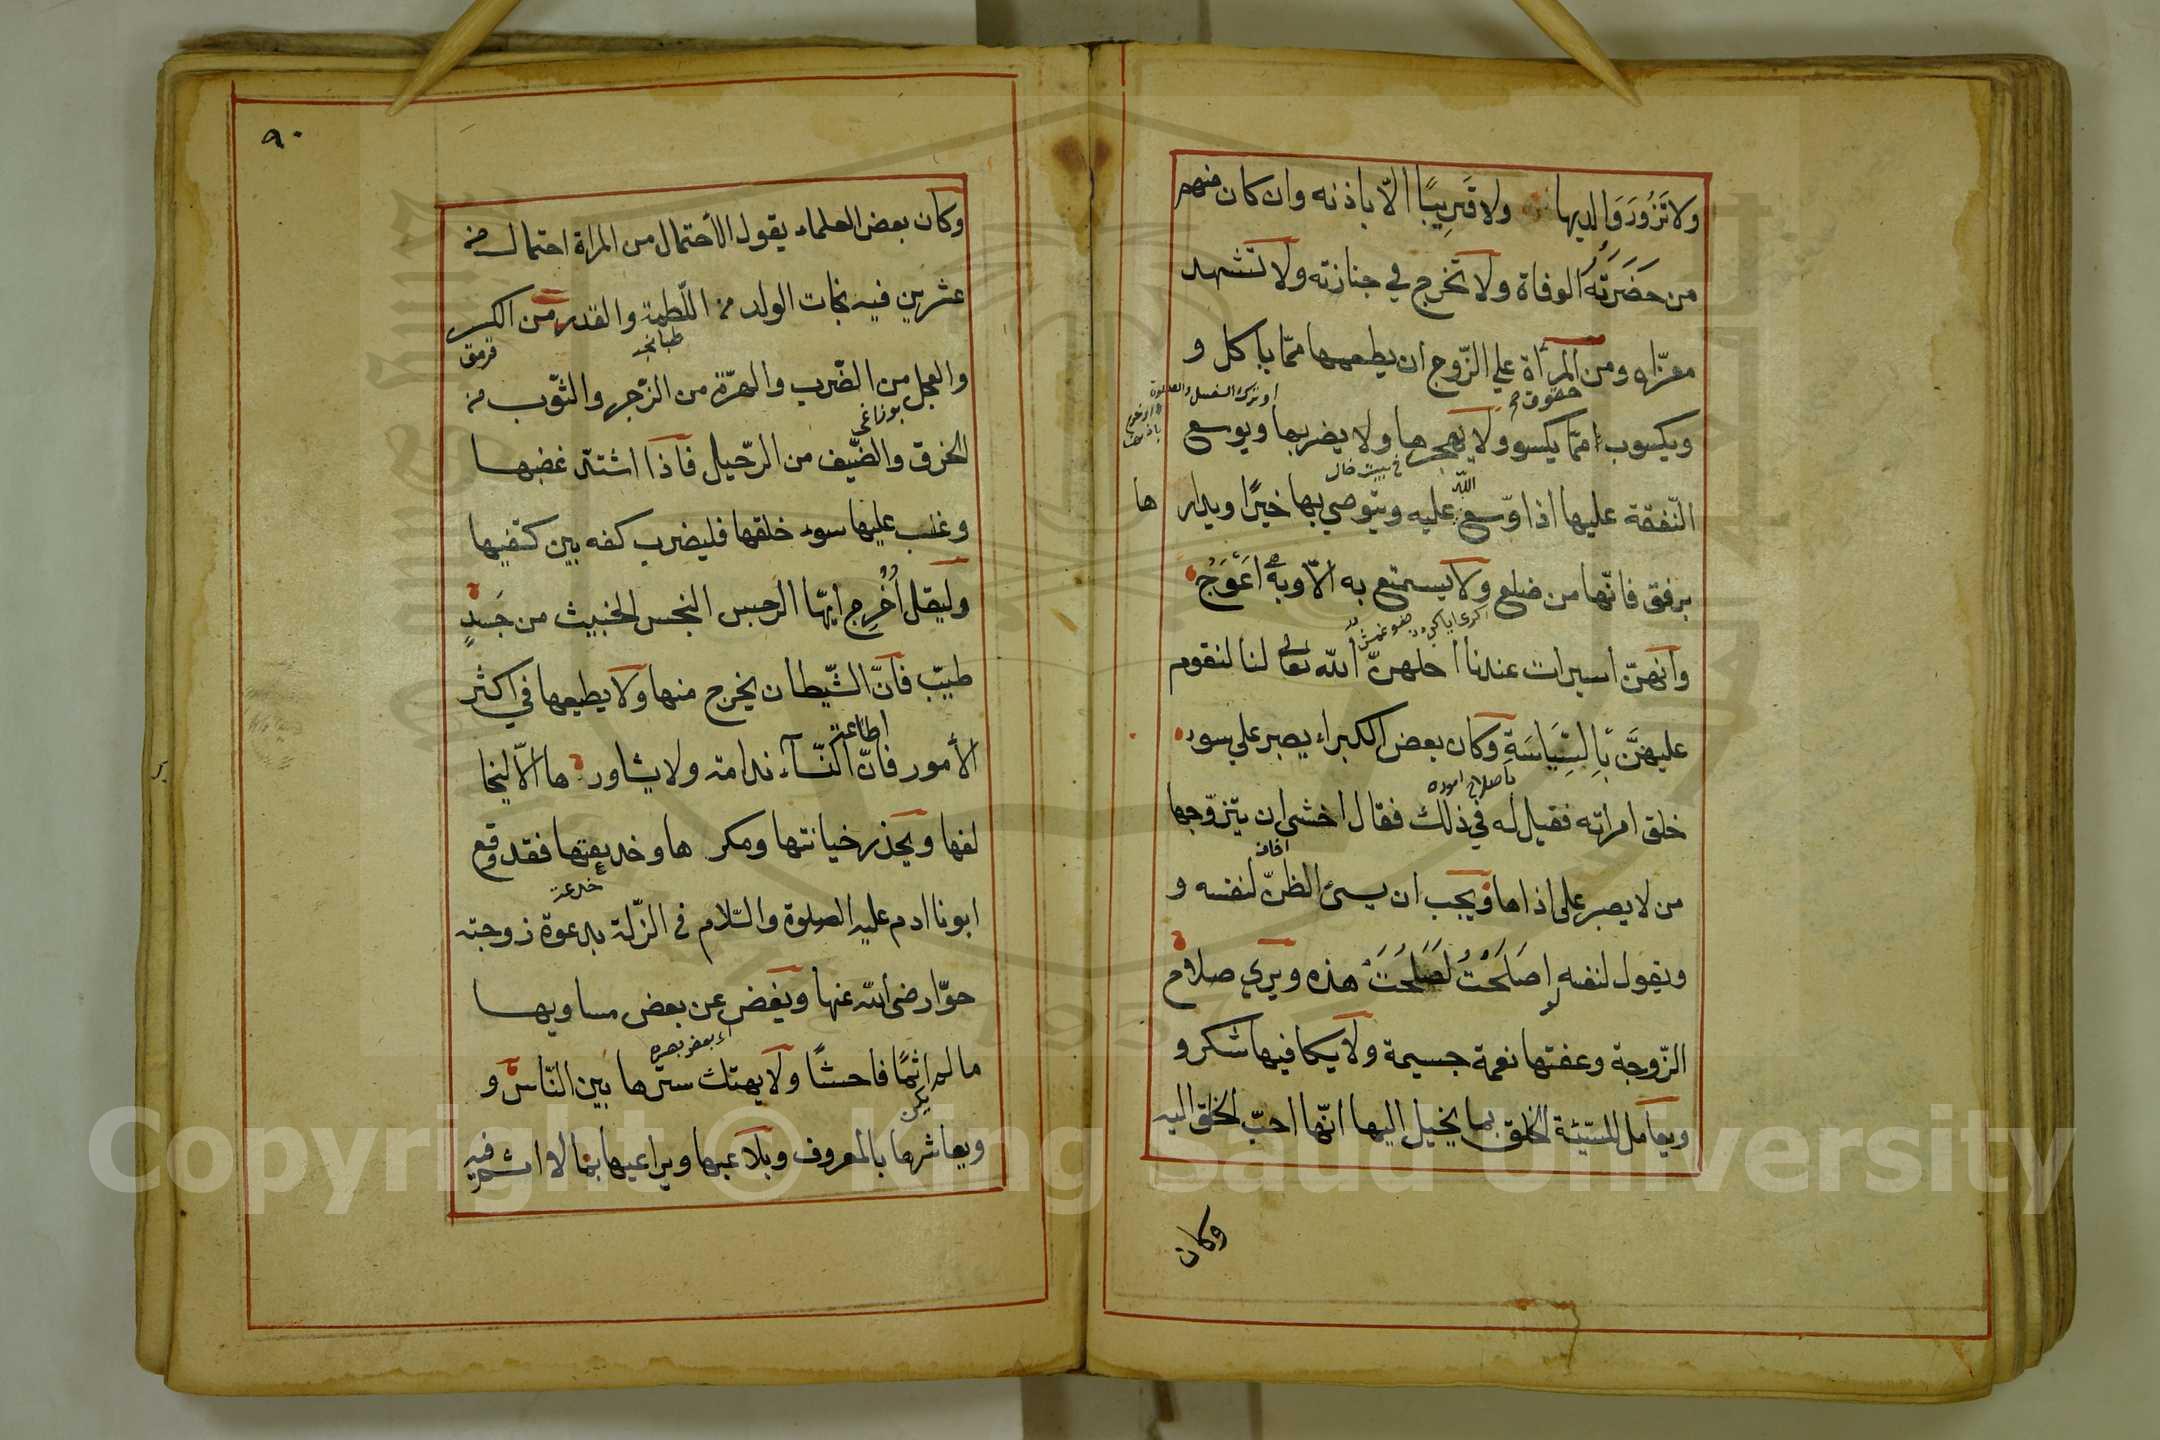 ولا تَزُورَ وَالديها ولا قَرِيبًا الّا باذنه وان كان منهم
من حَضَرَتْهُ الوفاة ولا تخرج في جنازته ولا تشهد
معزّاه ومن المرأة علي الزّوج ان يطعمها ممّا يأكل و
حقوق
او ترك الغسل والصلوة
ويكسوها ممّا يكسو ولا يهجرها ولا يضربها ويوسع
في بيت خال
النّفقة عليها اذا وسّع الله عليه ويتوصي بها خيرًا ويدار ها
برفق فانّها من ضلع ولا يستمتع به الّا وبه اعَوَجُ
اكري
وانهنّ اسيرات عندنا احلهنّ الله تعالى لنا لنقوم
عليهنّ بِالسِّيَاسَةِ وكان بعض الكبراء يصبر علي سوء
باصلاح اموره
خلق امراته فقيل له في ذلك فقال اخشى ان يتزوّجها
من لا يصبر على اذاها ويجب ان يسئ الظنّ لنفسه و
ويقول لنفسه لو اصلَحَتْ لَصَلَحَتْ هذه ويري صلاح
الزّوجة وعفتها نعمة جسيمة ولا يكافيها شكر و
ويعامل السّيّئة الخلق بما يخيل اليها انّها احبّ الخلق اليه
وكان
٩٠
وكان بعض العلماء يقول الاحتمال من المراة احتمال من
عشرين فيه نجات الولد من اللّطمة والقدر من الكسر
طبانجه
قرمق
والعجل من الضّرب والهرّة من الزّجر والثّوب من
بوزاغي
الخرق والضّيف من الرّحيل فاذا اشتدّ غضبها
وغلب عليها سوء خلقها فليضرب كفه بين كتفيها
وليقل اُخْرِج ايّها الرجس النجس الخبيث من جَسَدٍ
طيّب فانّ الشّيطان يخرج منها ولا يطيعها في اكثر
اطاعة
الأمور فانّ النّساء ندامة ولا يشاور ها الّا ليخا
لفها ويحذر خيانتها ومكر ها وخديعتها فقد وقع
خدعة
ابونا ادم عليه الصلوة والسّلام في الزّلة بدعوة زوجته
حوّا رضي الله عنها ويغض عن بعض مساويها
اي بعض بصره
ما لم يكن اثمًا فاحشًا ولا يهتك ستر ها بين النّاس و
ويعاشرها بالمعروف ويلاعبها ويراعيها بما لا اثم فيه
Copyright © King Saud University